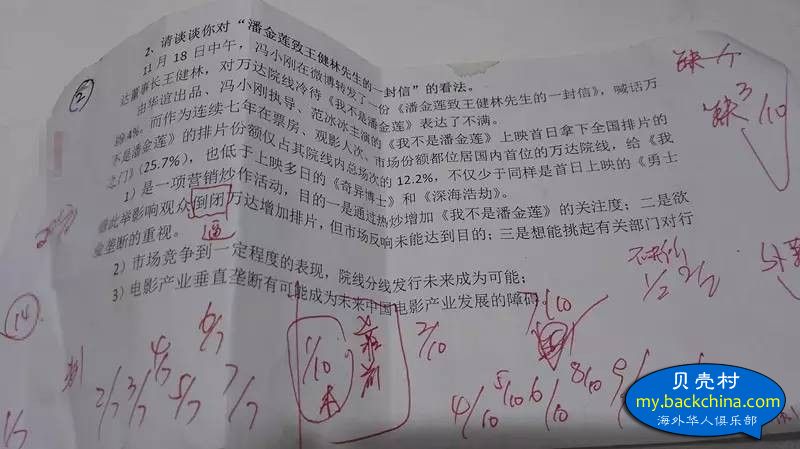 2、请谈谈你对“潘金莲致王健林先生的一封信”的看法。
11月18日中午，冯小刚在微博转发了一份《潘金莲致王健林先生的一封信》，喊话万
达董事长王健林，对万达院线冷待《我不是潘金莲》表达了不满。
由华谊出品、冯小刚执导、范冰冰主演的《我不是潘金莲》上映首日拿下全国排片的
约4%。而作为连续七年在票房、观影人次、市场份额都位居国内首位的万达院线，给《我
不是潘金莲》的排片份额仅占其院线内总场次的12.2%，不仅少于同样是首日上映的《勇士
之门》（25.7%），也低于上映多日的《奇异博士》和《深海浩劫》。
1）是一项营销炒作活动，目的一是通过热炒增加《我不是潘金莲》的关注度；二是欲
借此举影响观众倒闭万达增加排片，但市场反响未能达到目的；三是想能挑起有关部门对行
业垄断的重视。
逼
2）市场竞争到一定程度的表现，院线分线发行未来成为可能；
3）电影产业垂直垄断有可能成为未来中国电影产业发展的障碍。
2
缺
缺3/10
1/2 2/2
14
6/7
4/7
2/7 3/7 5/7 7/7
1/10
2/10
4/10 5/10 6/10 8/10
1/7
贝壳村
my.backchina.com
海外华人俱乐部